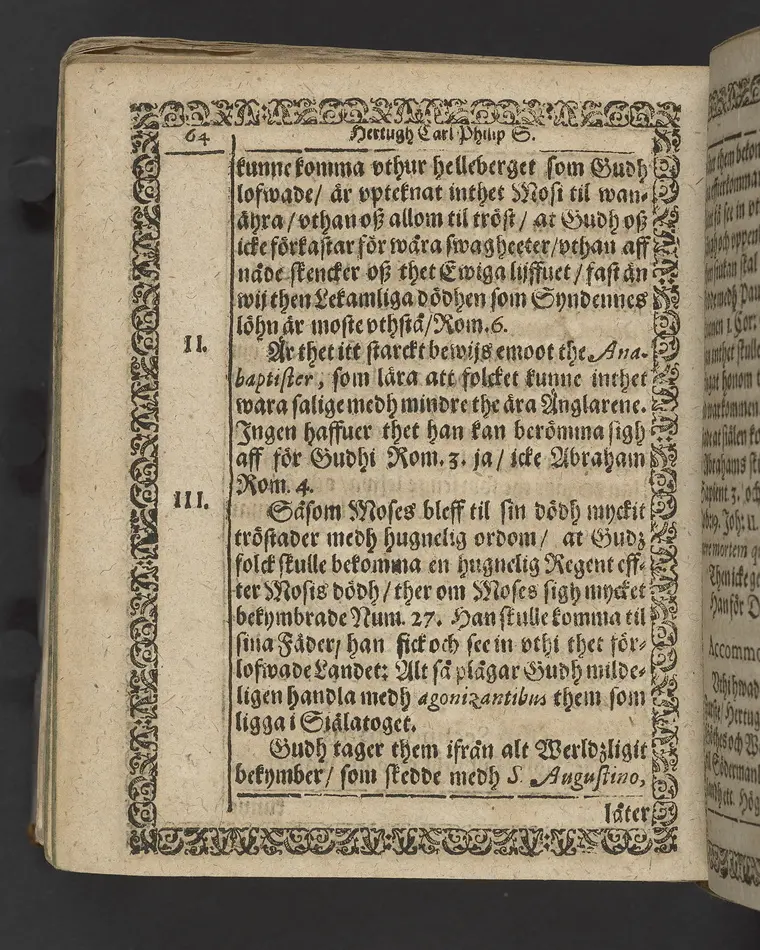 64
Hertugh Carl Philip S.
kunne komma vthur helleberget som Gudh
lofwade/ är vpteknat inthet Mosi til wan-
ähra/vthan oß allom til tröst/ at Gudh oß
icke förkastar för wåra swagheeter/vthan aff
nåde skencker oß thet Ewiga lijffuet/fast än
wij then Lekamliga dödhen som Syndennes
löhn är moste vthstå/Rom.6.
II.
Är thet itt starckt bewijs emoot the Ana-
baptister, som lära att folcket kunne inthet
wara salige medh mindre the ära Änglarene.
Ingen haffuer thet han kan berömma sigh
aff för Gudhi Rom. 3. ja/ icke Abraham
Rom. 4.
III.
Såsom Moses bleff til sin dödh myckit
tröstader medh hugnelig ordom/ at Gudz
folck skulle bekomma en hugnelig Regent eff-
ter Mosis dödh/ther om Moses sigh mycket
bekymbrade Num. 27. Han skulle komma til
sina Fäder/ han fick och see in vthi thet för-
lofwade Landet: Alt så plägar Gudh milde-
ligen handla medh agonizantibus them som
ligga i Siälatoget.
Gudh tager them ifrån alt Werldzligit
bekymber/ som skedde medh S. Augustino,
låter